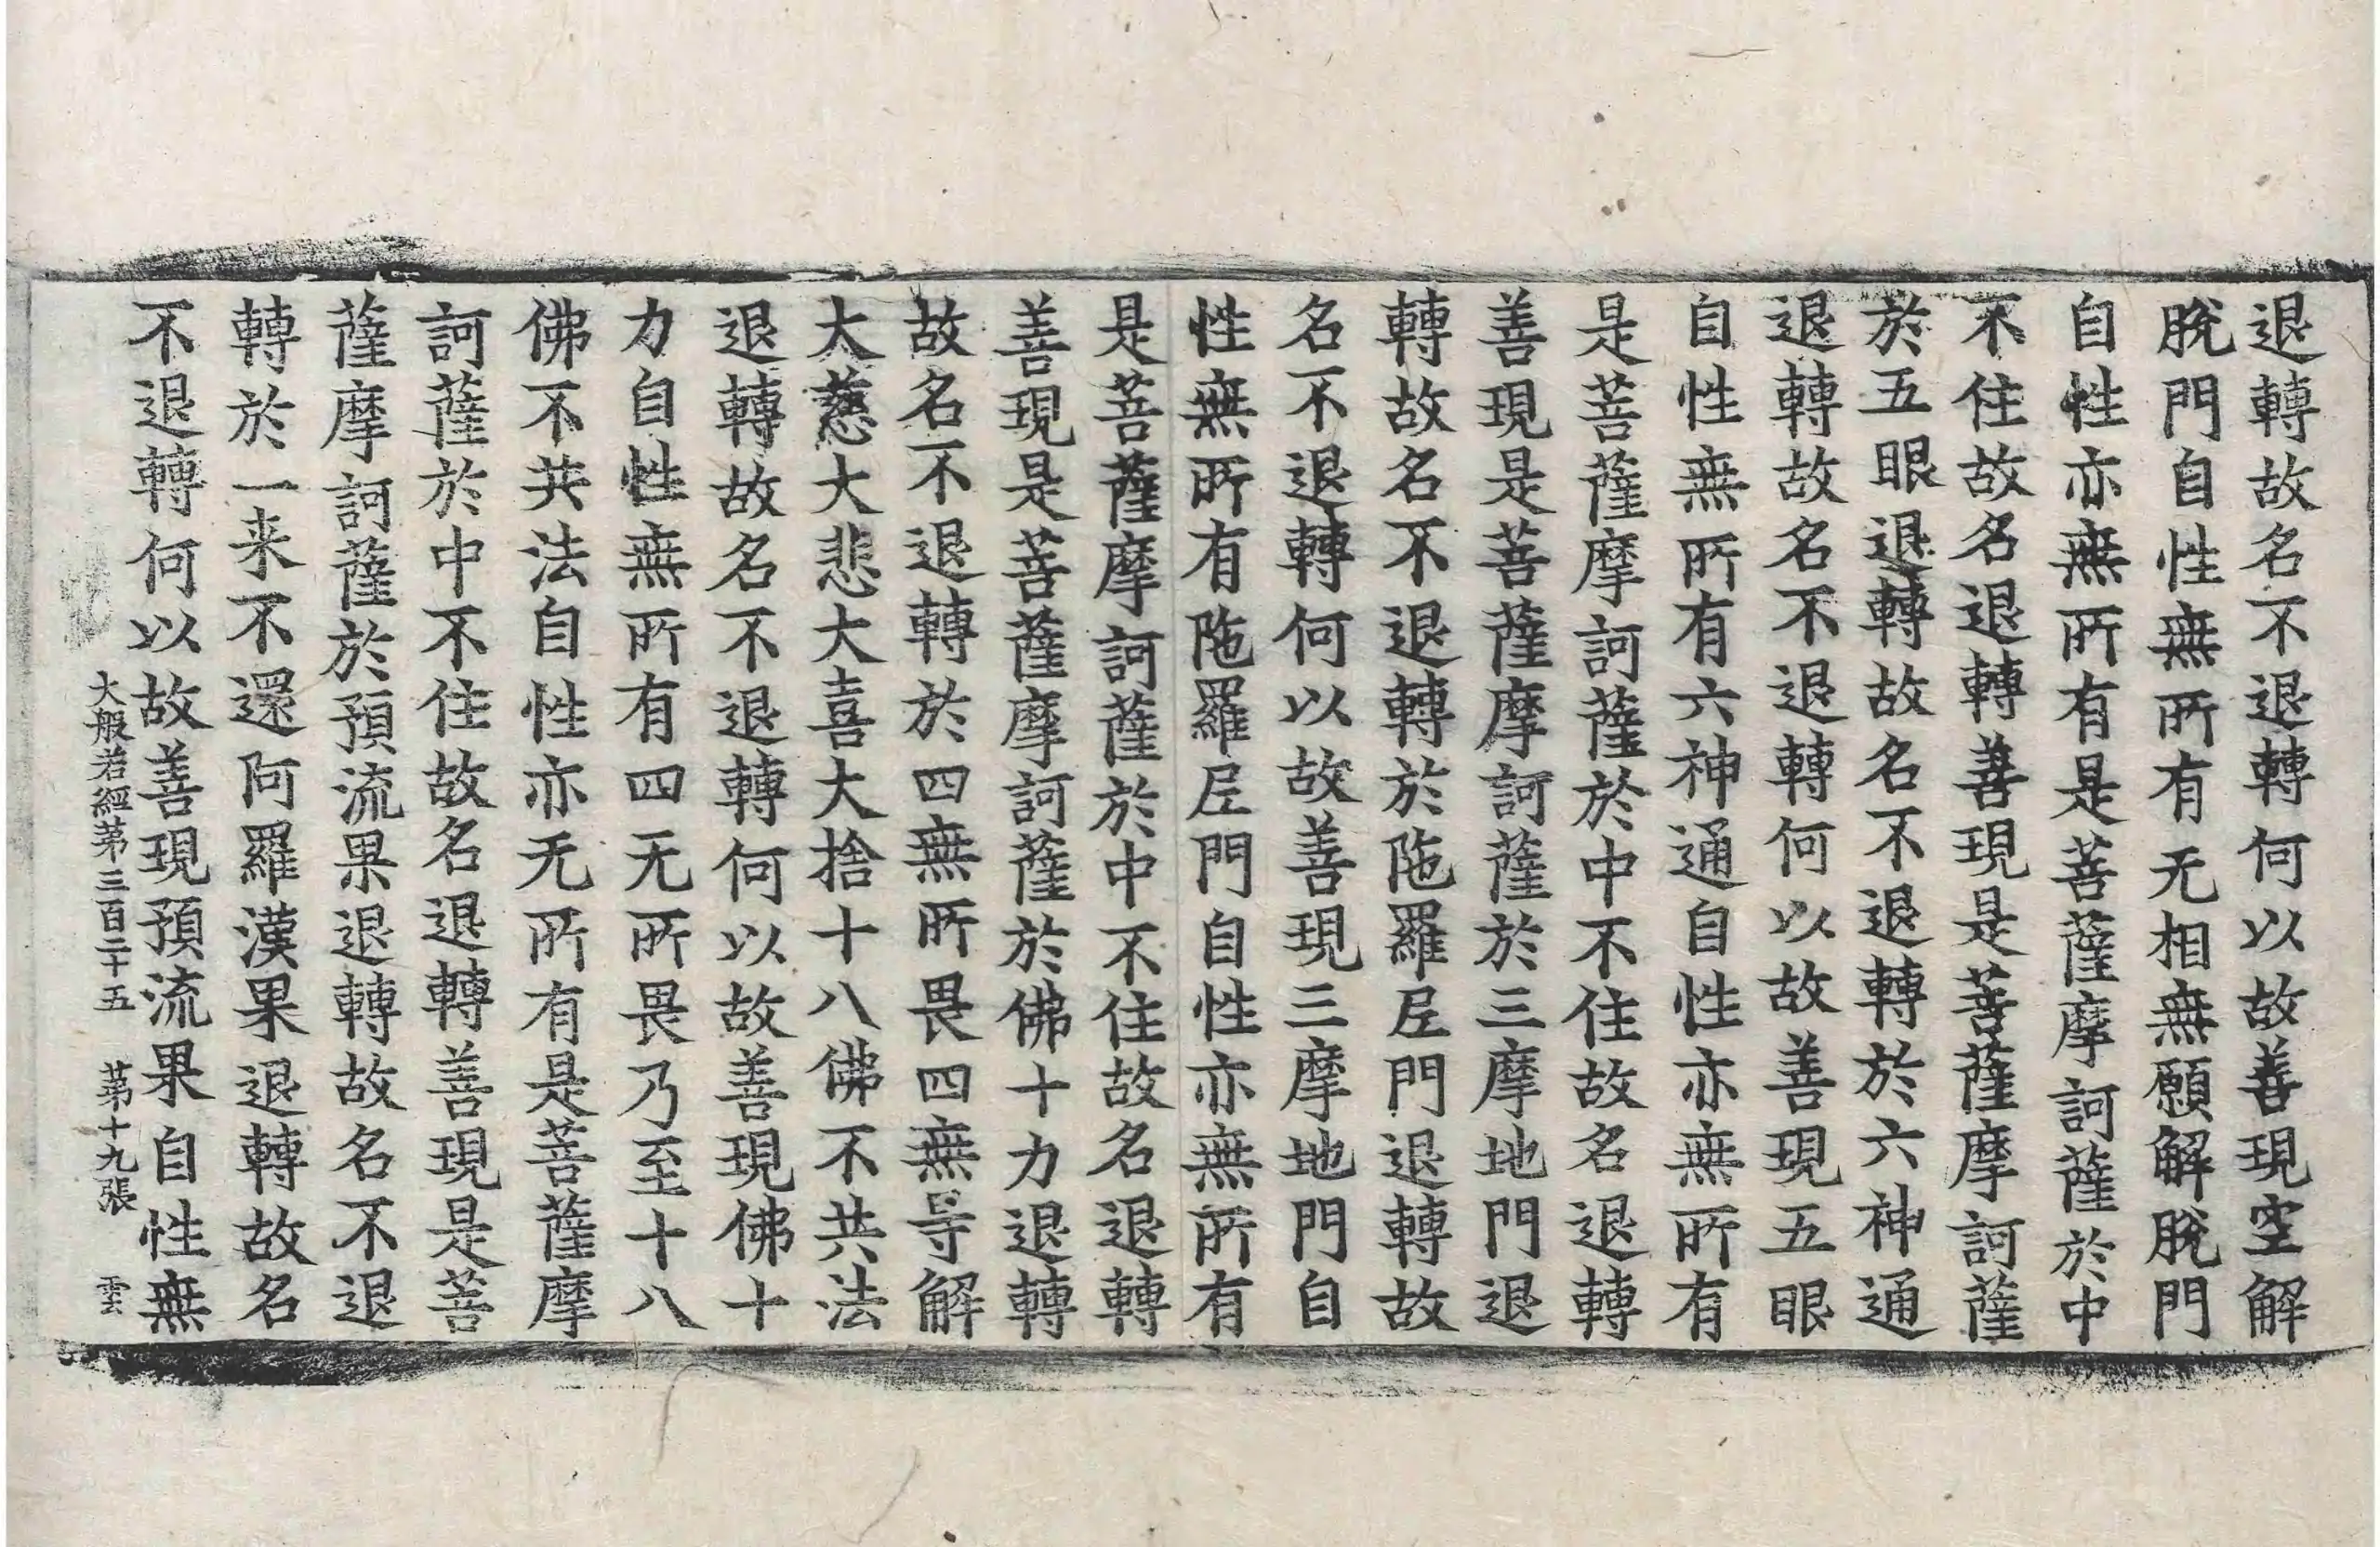 退轉故名不退轉何以故善現空解
脫門自性無所有无相無願解脫門
自性亦無所有是菩薩摩訶薩於中
不住故名退轉善現是菩薩摩訶薩
於五眼退轉故名不退轉於六神通
退轉故名不退轉何以故善現五眼
自性無所有六神通自性亦無所有
是菩薩摩訶薩於中不住故名退轉
善現是菩薩摩訶薩於三摩地門退
轉故名不退轉於陁羅尼門退轉故
名不退轉何以故善現三摩地門自
性無所有陁羅尼門自性亦無所有
是菩薩摩訶薩於中不住故名退轉
善現是菩薩摩訶薩於佛十力退轉
故名不退轉於四無所畏四無㝵解
大慈大悲大喜大捨十八佛不共法
退轉故名不退轉何以故善現佛十
力自性無所有四无所畏乃至十八
佛不共法自性亦无所有是菩薩摩
訶薩於中不住故名退轉善現是菩
薩摩訶薩於預流果退轉故名不退
轉於一来不還阿羅漢果退轉故名
不退轉何以故善現預流果自性無
大般若經苐三百二十五 苐十九張 雲